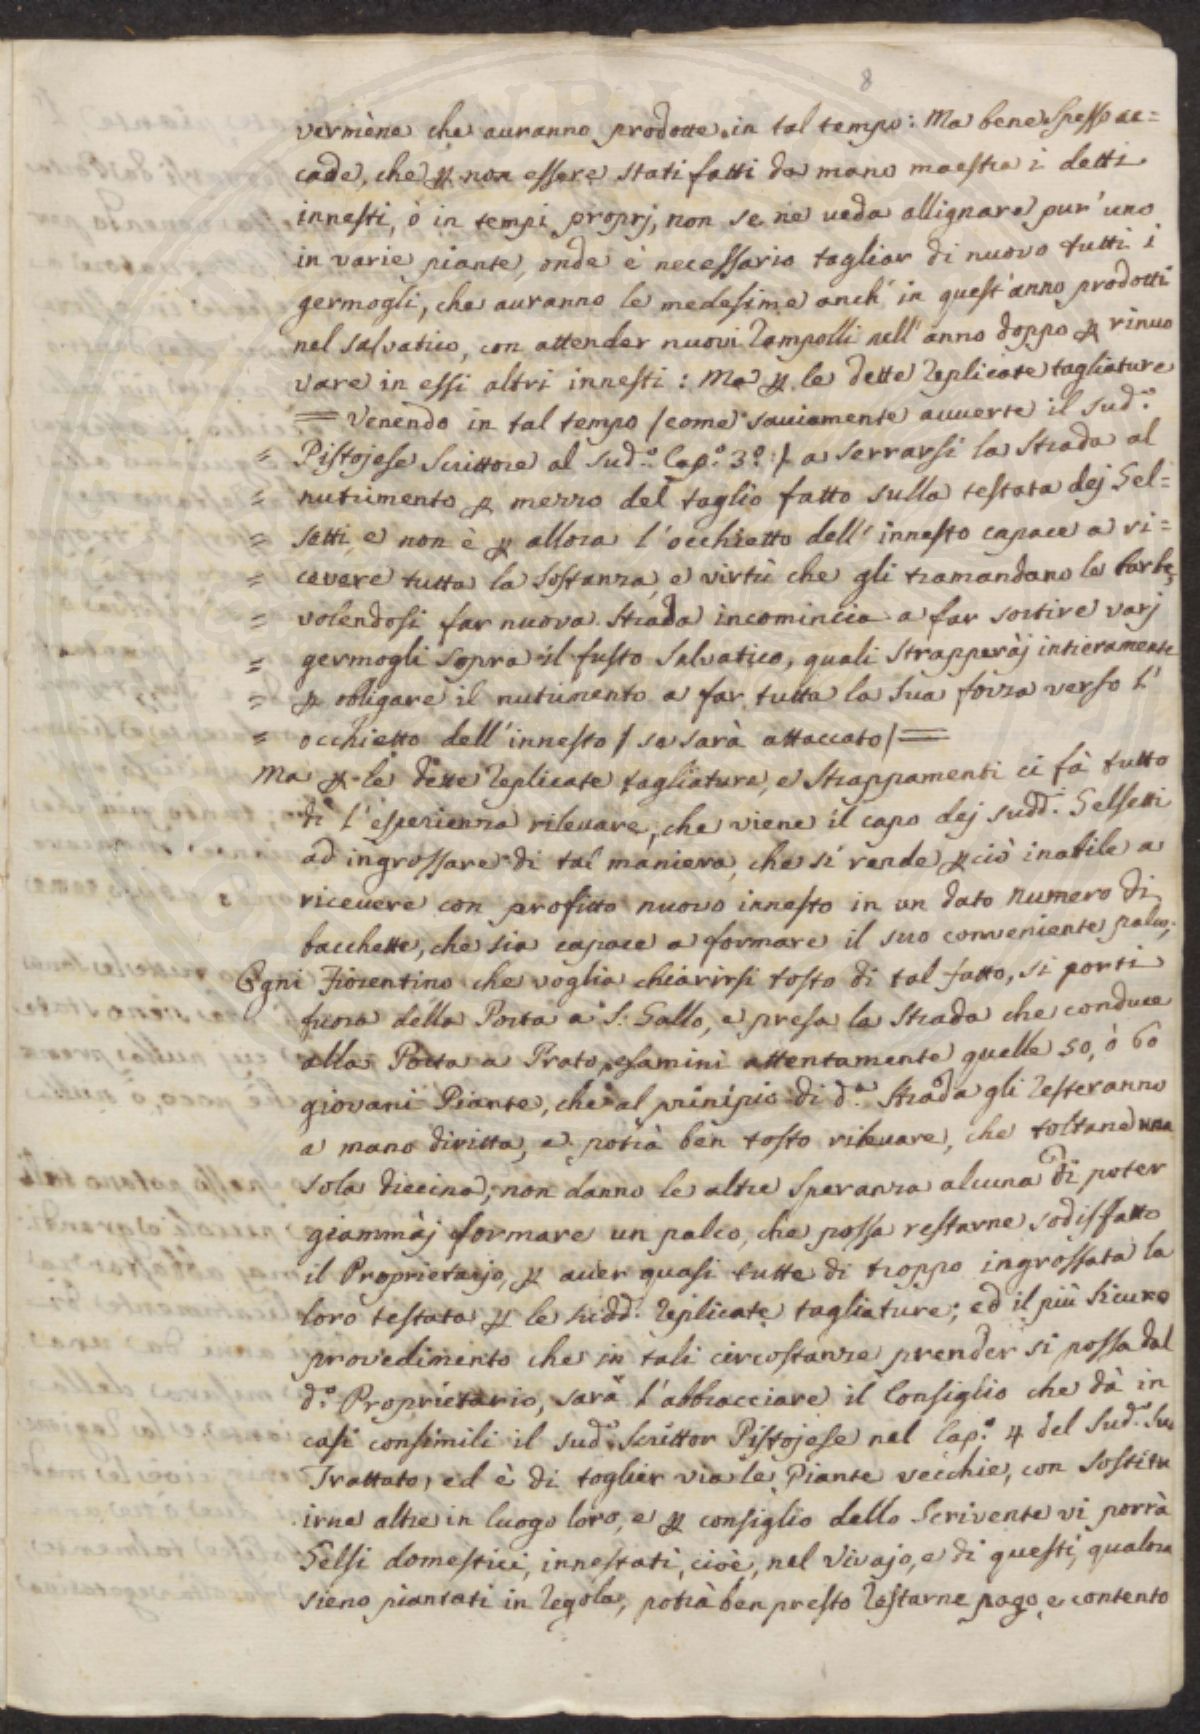 8
vermène che auranno prodotte in tal tempo: Ma bene spesso ac=
cade, che ꝑ non essere stati fatti da mano maestra i detti
innesti, ò in tempi proprj, non se ne veda allignare pur' uno
in varie piante, onde è necessario tagliar di nuovo tutti i
germogli, che auranno le medesime anch' in quest' anno prodotti
nel salvatico, con attender nuovi rampolli nell' anno doppo ꝑ rinuo
vare in essi altri innesti: Ma ꝑ le dette replicate tagliature
= Venendo in tal tempo /come sauiamente auuerte il sud.º
= Pistojese Scrittore al sud.º Cap.º 3.º:/ a serrarsi la strada al
= nutrimento ꝑ mezzo del taglio fatto sulla testata dej Gel=
= setti, e non è ꝑ allora l' occhietto dell' innesto capace a ri=
= cevere tutta la sostanza, e virtù che gli tramandano le barbe,
= volendosi far nuova strada incomincia a far sortire varj
= germogli sopra il fusto salvatico, quali strapperàj intieramente
= ꝑ obligare il nutrimento a far tutta la sua forza verso l'
= occhietto dell' innesto / se sarà attaccato/ =
Ma ꝑ le dette replicate tagliature, e strappamenti ci fà tutto
dì l' esperienza rileuare, che viene il capo dej sudd.i Gelsetti
ad ingrossare di tal maniera, che si rende ꝑciò inabile a
riceuere con profitto nuovo innesto in un dato numero di
bacchette, che sia capace a formare il suo conveniente palco;
Ogni Fiorentino che voglia chiarirsi tosto di tal fatto, si porti
fuora della Porta a S. Gallo, e presa la strada che conduce
alla Porta a Prato, esamini attentamente quelle 50, ò 60
giovani Piante, che al prinipio di d.ª strada gli resteranno
a mano diritta, e potrà ben tosto rileuare, che toltane una
sola diecina, non danno le altre speranza alcuna di poter
giammàj formare un palco, che possa restarne sodisfatto
il Proprietarjo, ꝑ auer quasi tutte di troppo ingrossata la
loro testata ꝑ le sudd. replicate tagliature; ed il più sicuro
provedimento che in tali circostanze prender si possa dal
d.º Proprietario, sarà l' abbracciare il Consiglio che dà in
casi consimili il sud.º Scrittor Pistojese nel Cap.º 4 del sud.º suo
Trattato, ed è di toglier via le Piante vecchie, con sostitu
irne altre in luogo loro, e ꝑ consiglio dello Scrivente vi porrà
Gelsi domestici, innestati, cioè, nel Vivajo, e di questi, qualora
sieno piantati in regola, potrà ben presto restarne pago, e contento